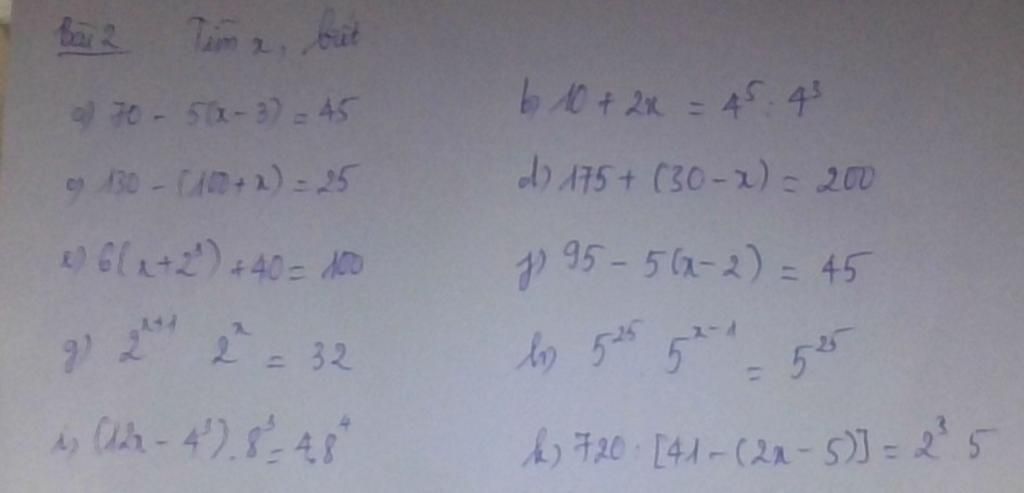 Bài 2 Tìm x, biết
a) 70 - 5(x - 3) = 45
b) 10 + 2x = 4⁵ : 4³
c) 130 - (100 + x) = 25
d) 175 + (30 - x) = 200
e) 6(x + 2³) + 40 = 100
f) 95 - 5(x - 2) = 45
g) 2ˣ⁺¹ 2ˣ = 32
h) 5²⁵ 5ˣ⁻¹ = 5²⁵
i) (12x - 4³).8³ = 4.8⁴
k) 720 : [41 - (2x - 5)] = 2³ 5